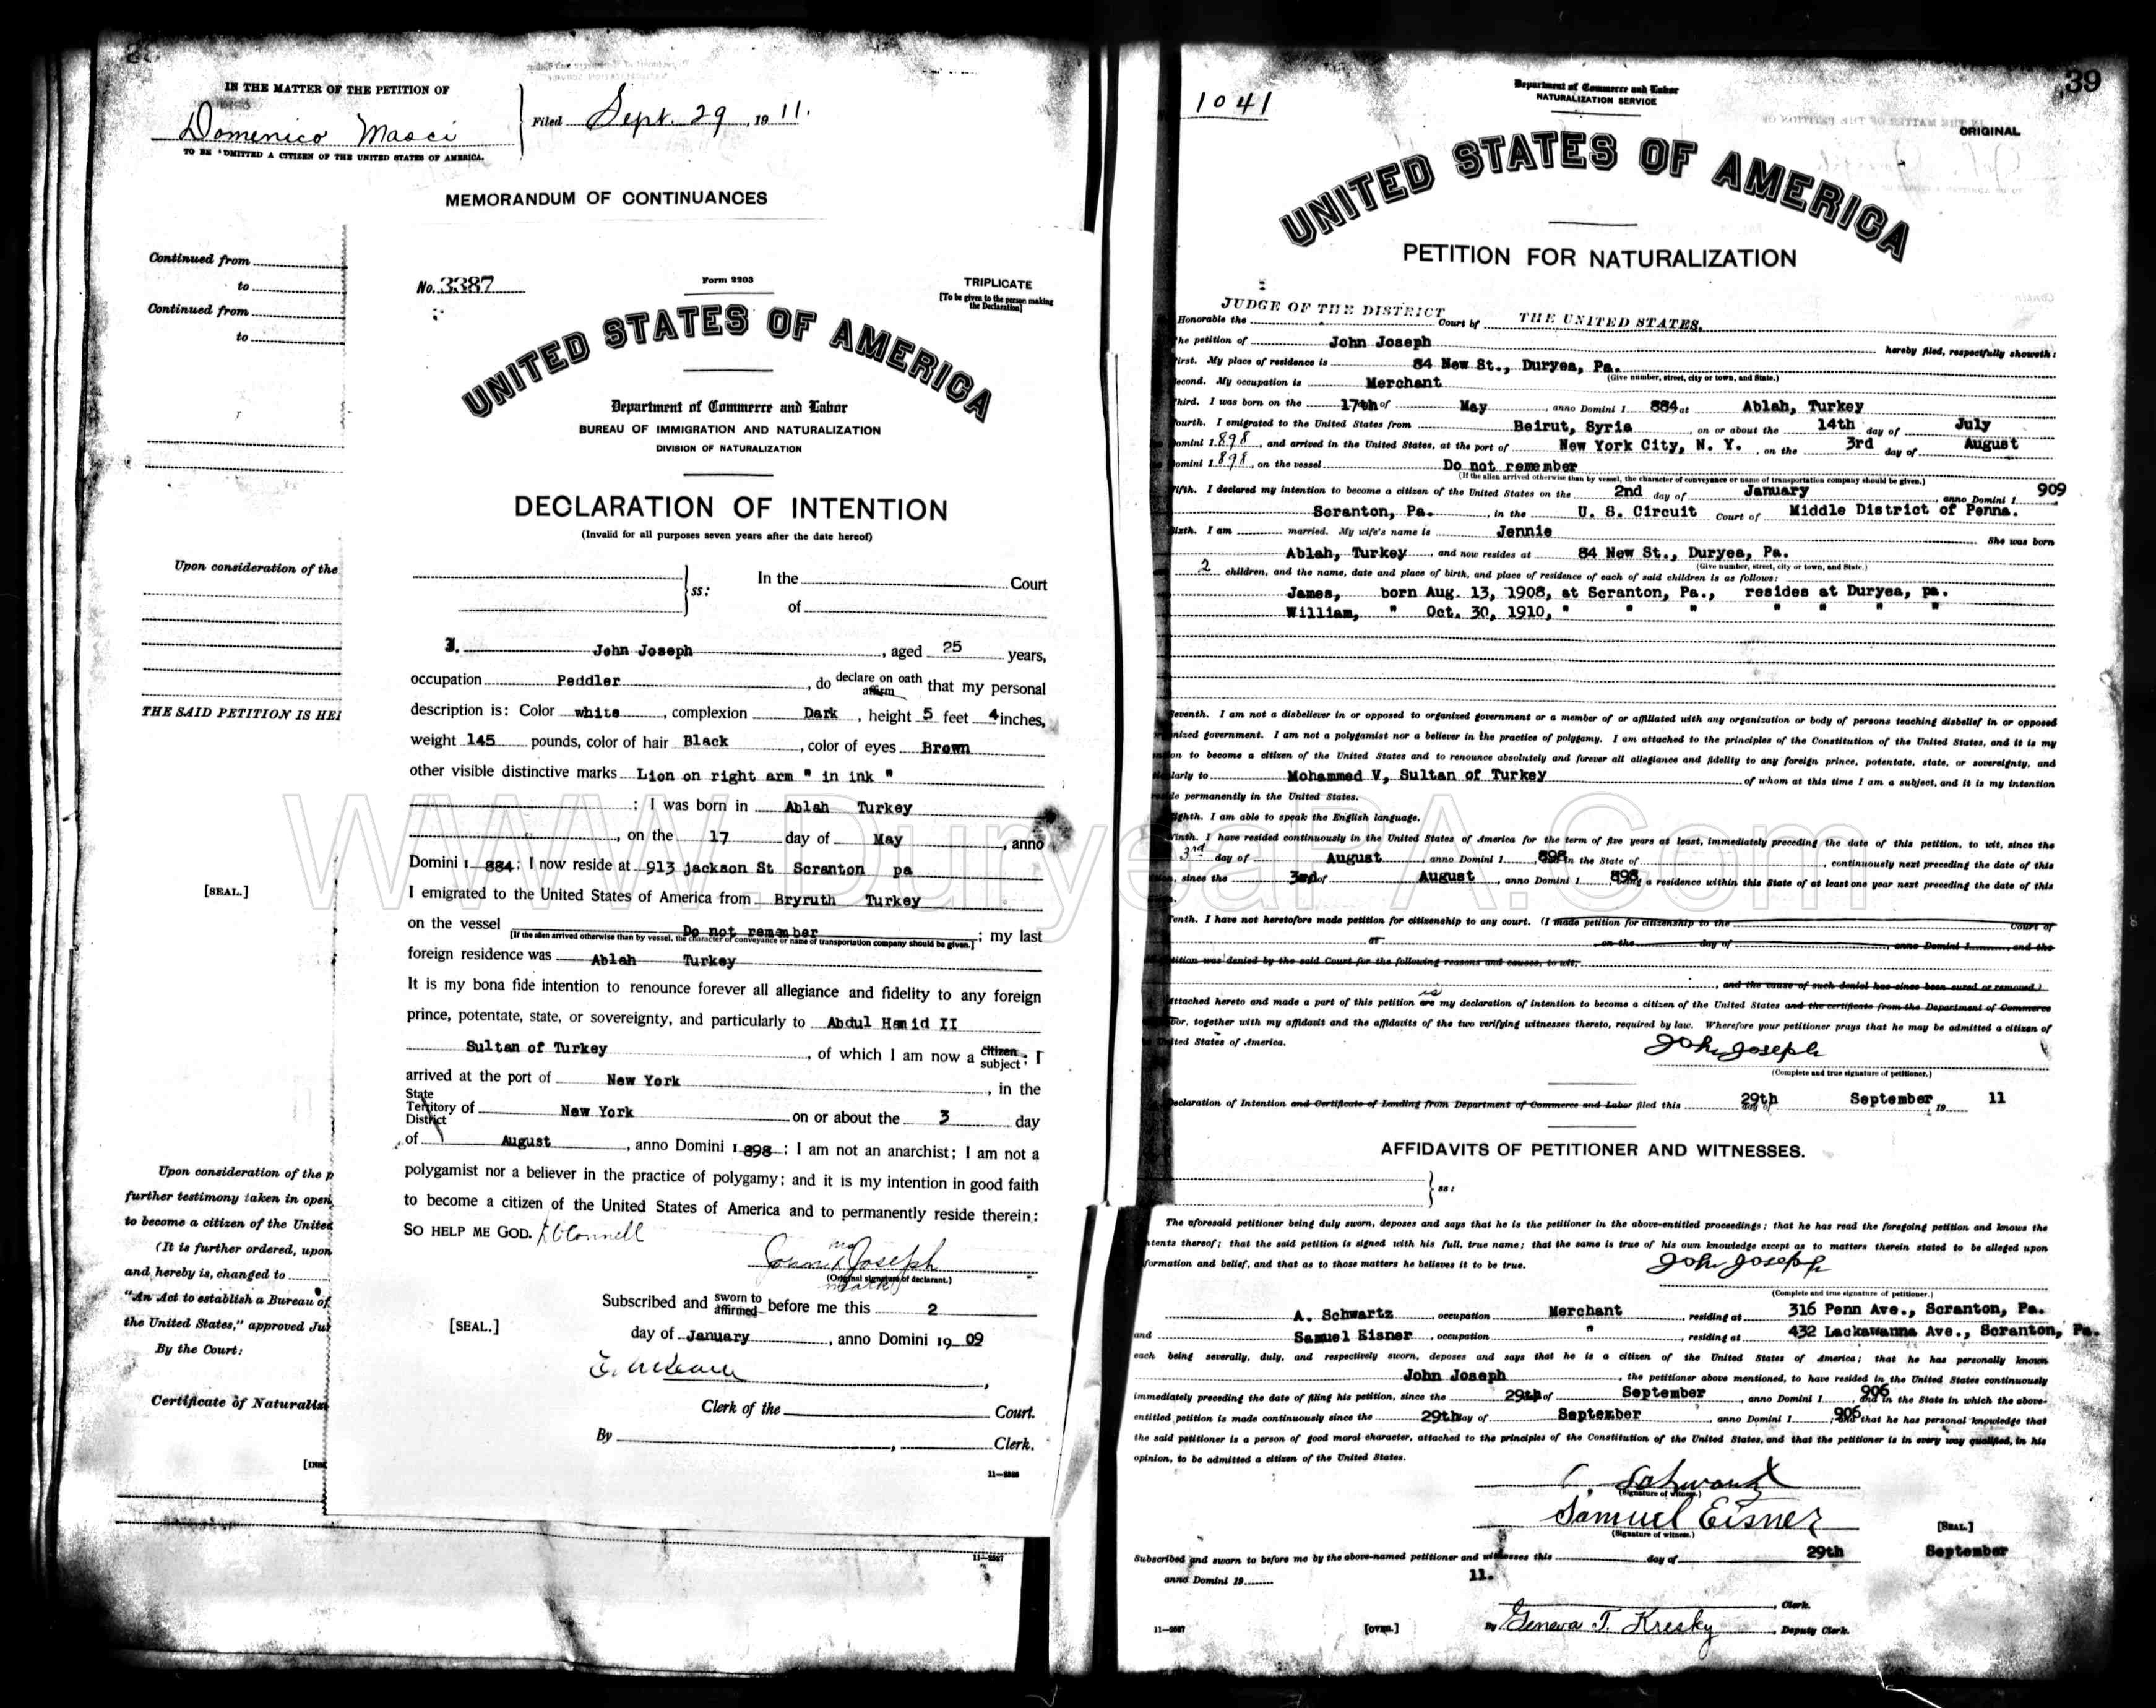 IN THE MATTER OF THE PETITION OF
Domenico Masci
Filed Sept. 29, 1911.
TO BE ADMITTED A CITIZEN OF THE UNITED STATES OF AMERICA.
MEMORANDUM OF CONTINUANCES
Continued from
to
Continued from
to
Upon consideration of the
THE SAID PETITION IS HE
[SEAL.]
Upon consideration of the p
further testimony taken in open
to become a citizen of the United
(It is further ordered, upon
and hereby is, changed to
"An Act to establish a Bureau of
the United States," approved Ju
By the Court:
Certificate of Naturaliz
11—2527
No. 3387
Form 2203
TRIPLICATE
[To be given to the person making
the Declaration]
UNITED STATES OF AMERICA
Department of Commerce and Labor
BUREAU OF IMMIGRATION AND NATURALIZATION
DIVISION OF NATURALIZATION
DECLARATION OF INTENTION
(Invalid for all purposes seven years after the date hereof)
ss: In the Court
of
I, John Joseph, aged 25 years,
occupation Peddler, do declare on oath affirm that my personal
description is: Color white, complexion Dark, height 5 feet 4 inches,
weight 145 pounds, color of hair Black, color of eyes Brown
other visible distinctive marks Lion on right arm " in ink "
; I was born in Ablah Turkey
, on the 17 day of May, anno
Domini 1884; I now reside at 913 jackson St Scranton pa
I emigrated to the United States of America from Bryruth Turkey
on the vessel Do not remember; my last
[If the alien arrived otherwise than by vessel, the character of conveyance or name of transportation company should be given.]
foreign residence was Ablah Turkey
It is my bona fide intention to renounce forever all allegiance and fidelity to any foreign
prince, potentate, state, or sovereignty, and particularly to Abdul Hamid II
Sultan of Turkey, of which I am now a citizen subject; I
arrived at the port of New York, in the
State Territory District of New York on or about the 3 day
of August, anno Domini 1898; I am not an anarchist; I am not a
polygamist nor a believer in the practice of polygamy; and it is my intention in good faith
to become a citizen of the United States of America and to permanently reside therein:
SO HELP ME GOD.
John X Joseph
(Original signature of declarant.)
mark
Subscribed and sworn to affirmed before me this 2
[SEAL.] day of January, anno Domini 1909
Clerk of the Court.
By , Clerk.
WWW.DuryeaPA.Com
39
1041
Department of Commerce and Labor
NATURALIZATION SERVICE
ORIGINAL
UNITED STATES OF AMERICA
PETITION FOR NATURALIZATION
Honorable the JUDGE OF THE DISTRICT Court of THE UNITED STATES.
he petition of John Joseph hereby filed, respectfully showeth:
First. My place of residence is 84 New St., Duryea, Pa.
(Give number, street, city or town, and State.)
econd. My occupation is Merchant
Third. I was born on the 17th of May, anno Domini 1884 at Ablah, Turkey
ourth. I emigrated to the United States from Beirut, Syria on or about the 14th day of July
omini 1898, and arrived in the United States, at the port of New York City, N. Y., on the 3rd day of August
omini 1898, on the vessel Do not remember
(If the alien arrived otherwise than by vessel, the character of conveyance or name of transportation company should be given.)
Fifth. I declared my intention to become a citizen of the United States on the 2nd day of January, anno Domini 1909
Scranton, Pa., in the U. S. Circuit Court of Middle District of Penna.
Sixth. I am married. My wife's name is Jennie She was born
Ablah, Turkey, and now resides at 84 New St., Duryea, Pa.
(Give number, street, city or town, and State.)
2 children, and the name, date and place of birth, and place of residence of each of said children is as follows:
James, born Aug. 13, 1908, at Scranton, Pa., resides at Duryea, pa.
William, " Oct. 30, 1910, " " " " " " "
Seventh. I am not a disbeliever in or opposed to organized government or a member of or affiliated with any organization or body of persons teaching disbelief in or opposed
nized government. I am not a polygamist nor a believer in the practice of polygamy. I am attached to the principles of the Constitution of the United States, and it is my
on to become a citizen of the United States and to renounce absolutely and forever all allegiance and fidelity to any foreign prince, potentate, state, or sovereignty, and
larly to Mohammed V, Sultan of Turkey of whom at this time I am a subject, and it is my intention
e permanently in the United States.
ighth. I am able to speak the English language.
Ninth. I have resided continuously in the United States of America for the term of five years at least, immediately preceding the date of this petition, to wit, since the
3rd day of August, anno Domini 1898 in the State of , continuously next preceding the date of this
, since the 3rd of August, anno Domini 1898, being a residence within this State of at least one year next preceding the date of this
Tenth. I have not heretofore made petition for citizenship to any court. (I made petition for citizenship to the Court of
at on the day of , anno Domini 1 , and the
tition was denied by the said Court for the following reasons and causes, to wit,
, and the cause of such denial has since been cured or removed.)
Attached hereto and made a part of this petition are is my declaration of intention to become a citizen of the United States and the certificate from the Department of Commerce
bor, together with my affidavit and the affidavits of the two verifying witnesses thereto, required by law. Wherefore your petitioner prays that he may be admitted a citizen of
United States of America.
John Joseph
(Complete and true signature of petitioner.)
eclaration of Intention and Certificate of Landing from Department of Commerce and Labor filed this 29th day of September, 1911
AFFIDAVITS OF PETITIONER AND WITNESSES.
ss:
The aforesaid petitioner being duly sworn, deposes and says that he is the petitioner in the above-entitled proceedings; that he has read the foregoing petition and knows the
tents thereof; that the said petition is signed with his full, true name; that the same is true of his own knowledge except as to matters therein stated to be alleged upon
formation and belief, and that as to those matters he believes it to be true.
John Joseph
(Complete and true signature of petitioner.)
A. Schwartz, occupation Merchant, residing at 316 Penn Ave., Scranton, Pa.
and Samuel Eisner, occupation ", residing at 432 Lackawanna Ave., Scranton, Pa.
each being severally, duly, and respectively sworn, deposes and says that he is a citizen of the United States of America; that he has personally known
John Joseph, the petitioner above mentioned, to have resided in the United States continuously
immediately preceding the date of filing his petition, since the 29th of September, anno Domini 1906, and in the State in which the above-
entitled petition is made continuously since the 29th day of September, anno Domini 1906; and that he has personal knowledge that
the said petitioner is a person of good moral character, attached to the principles of the Constitution of the United States, and that the petitioner is in every way qualified, in his
opinion, to be admitted a citizen of the United States.
Schwartz
(Signature of witness.)
Samuel Eisner
(Signature of witness.)
[SEAL.]
Subscribed and sworn to before me by the above-named petitioner and witnesses this day of 29th September
anno Domini 19 11.
, Clerk.
11—2527 [OVER.] By Geneva T. Kresky, Deputy Clerk.